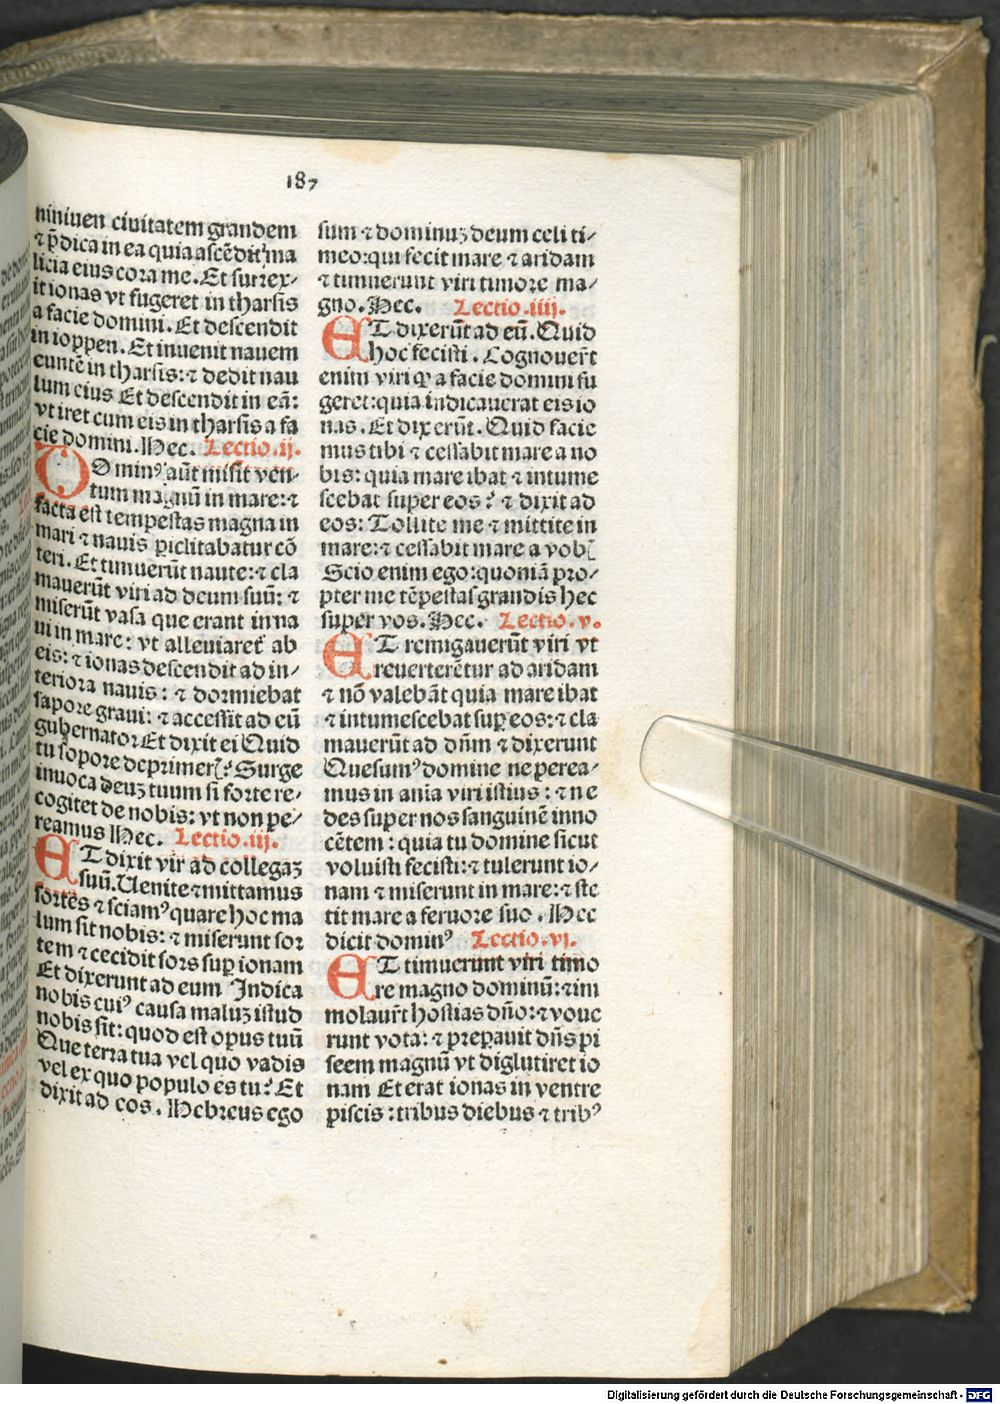 187
niniuen ciuitatem grandem
⁊ p̄dica in ea quia ascēdit ma
licia eius cora me. Et surrex-
it ionas vt fugeret in tharsis
a facie domini. Et descendit
in ioppen. Et inuenit nauem
euntē in tharsis: ⁊ dedit nau
lum eius Et descendit in eā:
vt iret cum eis in tharsis a fa
cie domini. Hec. Lectio .ij.
DOminꝰ aūt misit ven-
tum magnū in mare: ⁊
facta est tempestas magna in
mari ⁊ nauis ꝑiclitabatur cō
teri. Et timuerūt naute: ⁊ cla
mauerūt viri ad deum suū: ⁊
miserūt vasa que erant in na
ui in mare: vt alleuiaret᷑ ab
eis: ⁊ ionas descendit ad in-
teriora nauis: ⁊ dormiebat
sapore graui: ⁊ accessit ad eū
gubernator Et dixit ei Quid
tu sopore deprimerꝭ? Surge
inuoca deuꝫ tuum si forte re-
cogitet de nobis: vt non pe-
reamus Hec. Lectio .iij.
ET dixit vir ad collegaꝫ
suū. Uenite ⁊ mittamus
sortes ⁊ sciamꝰ quare hoc ma
lum sit nobis: ⁊ miserunt sor
tem ⁊ cecidit sors suꝑ ionam
Et dixerunt ad eum Indica
nobis cuiꝰ causa maluꝫ istud
nobis sit: quod est opus tuū
Que terra tua vel quo vadis
vel ex quo populo es tu? Et
dixit ad eos. Hebreus ego
sum ⁊ dominuꝫ deum celi ti-
meo: qui fecit mare ⁊ aridam
⁊ timuerunt viri timore ma-
gno. Hec. Lectio .iiij.
ET dixerūt ad eū. Quid
hoc fecisti. Cognouer̄t
enim viri ꝙ a facie domini fu
geret: quia indicauerat eis io
nas. Et dixerūt. Quid facie
mus tibi ⁊ cessabit mare a no
bis: quia mare ibat ⁊ intume
scebat super eos? ⁊ dixit ad
eos: Tollite me ⁊ mittite in
mare: ⁊ cessabit mare a vobꝭ
Scio enim ego: quoniā pro-
pter me tēpestas grandis hec
super vos. Hec. Lectio .v.
ET remigauerūt viri vt
reuerterētur ad aridam
⁊ nō valebāt quia mare ibat
⁊ intumescebat suꝑ eos: ⁊ cla
mauerūt ad dn̄m ⁊ dixerunt
Quesumꝰ domine ne perea-
mus in aīa viri istius: ⁊ ne
des super nos sanguinē inno
cētem: quia tu domine sicut
voluisti fecisti: ⁊ tulerunt io-
nam ⁊ miserunt in mare: ⁊ ste
tit mare a feruore suo. Hec
dicit dominꝰ Lectio .vi.
ET timuerunt viri timo
re magno dominū: ⁊ im
molaur̄t hostias dn̄o: ⁊ voue
runt vota: ⁊ preꝑauit dn̄s pi
scem magnū vt diglutiret io
nam Et erat ionas in ventre
piscis: tribus diebus ⁊ tribꝰ
Digitalisierung gefördert durch die Deutsche Forschungsgemeinschaft - DFG